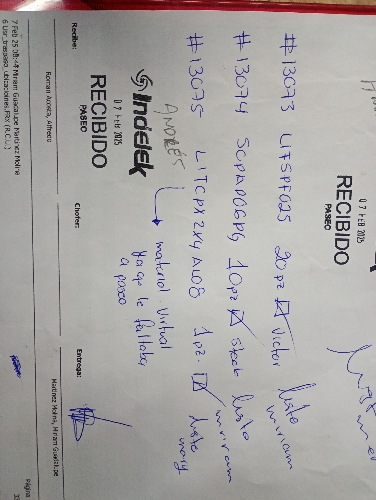 RECIBIDO
07 FEB 2025
PASEO
#13073 LTFSPF025 20pz Victor listo miriam
#13074 SCPAP06PG 10pz Stock listo miriam
#13075 LTCPX2X4AW08 1pz. listo
ANDRÉS
material virtual
ya que le faltaba
a paseo
Indelek
07 FEB 2025
RECIBIDO
PASEO
Recibe: Chofer: Entrega:
Roman Acosta, Alfredo Martinez Molina, Miriam Guadalupe
7 Feb 25 08:44 Miriam Guadalupe Martinez Molina Página
6 Usr_traspaso_ubicaciones.FRX (R.C.U.)